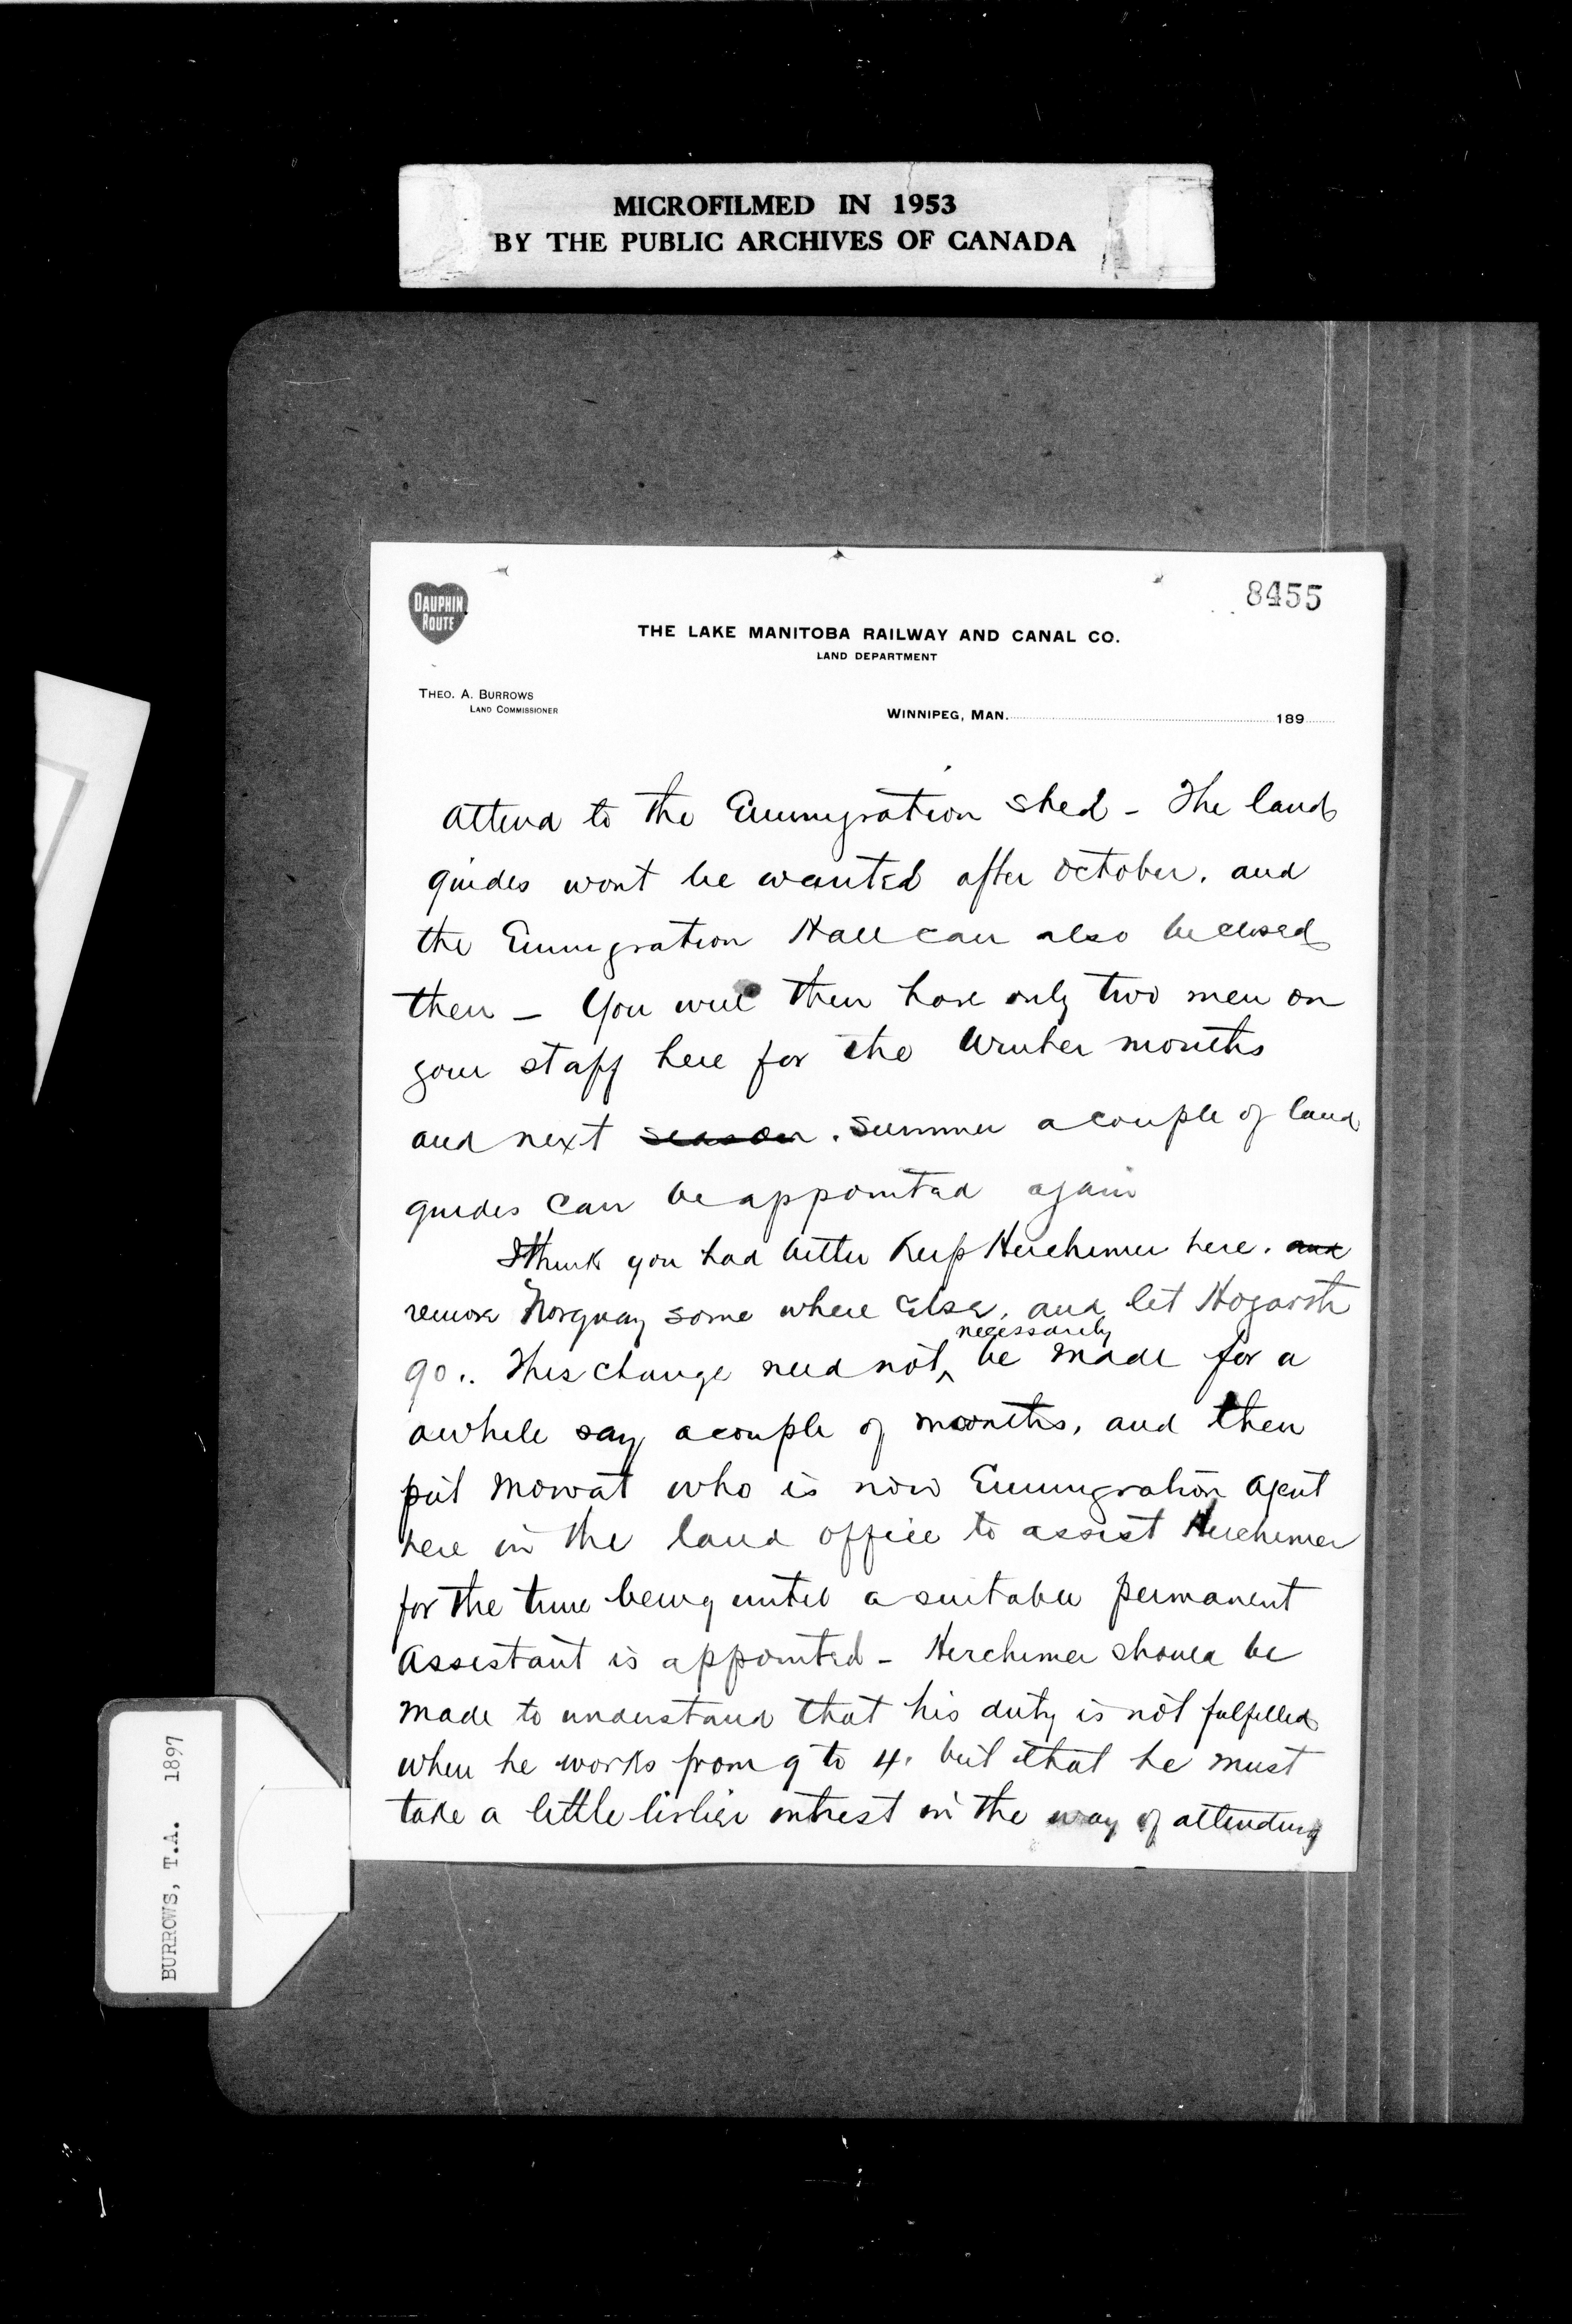 MICROFILMED IN 1953
BY THE PUBLIC ARCHIVES OF CANADA
8455
DAUPHIN
ROUTE
THE LAKE MANITOBA RAILWAY AND CANAL CO.
LAND DEPARTMENT
THEO. A. BURROWS
LAND COMMISSIONER
WINNIPEG, MAN. 189
attend to the Emmigration shed - The land
guides wont be wanted after October. and
the Emmigration Hall can also be closed
then - You will then have only two men on
your staff here for the Winter months
and next season. Summer a couple of land
guides can be appointed again
I think you had better keep Herchemer here. and
remove Norquay some where else, and let Hogarth
go.. This change need not necessarily be made for a
awhile say a couple of months, and then
put Mowat who is now Emmigration Agent
here in the land office to assist Herchemer
for the time being until a suitable permanent
Assistant is appointed - Herchemer should be
made to understand that his duty is not fulfilled
when he works from 9 to 4. but that he must
take a little livlier intrest in the way of attending
BURROWS, T.A. 1897